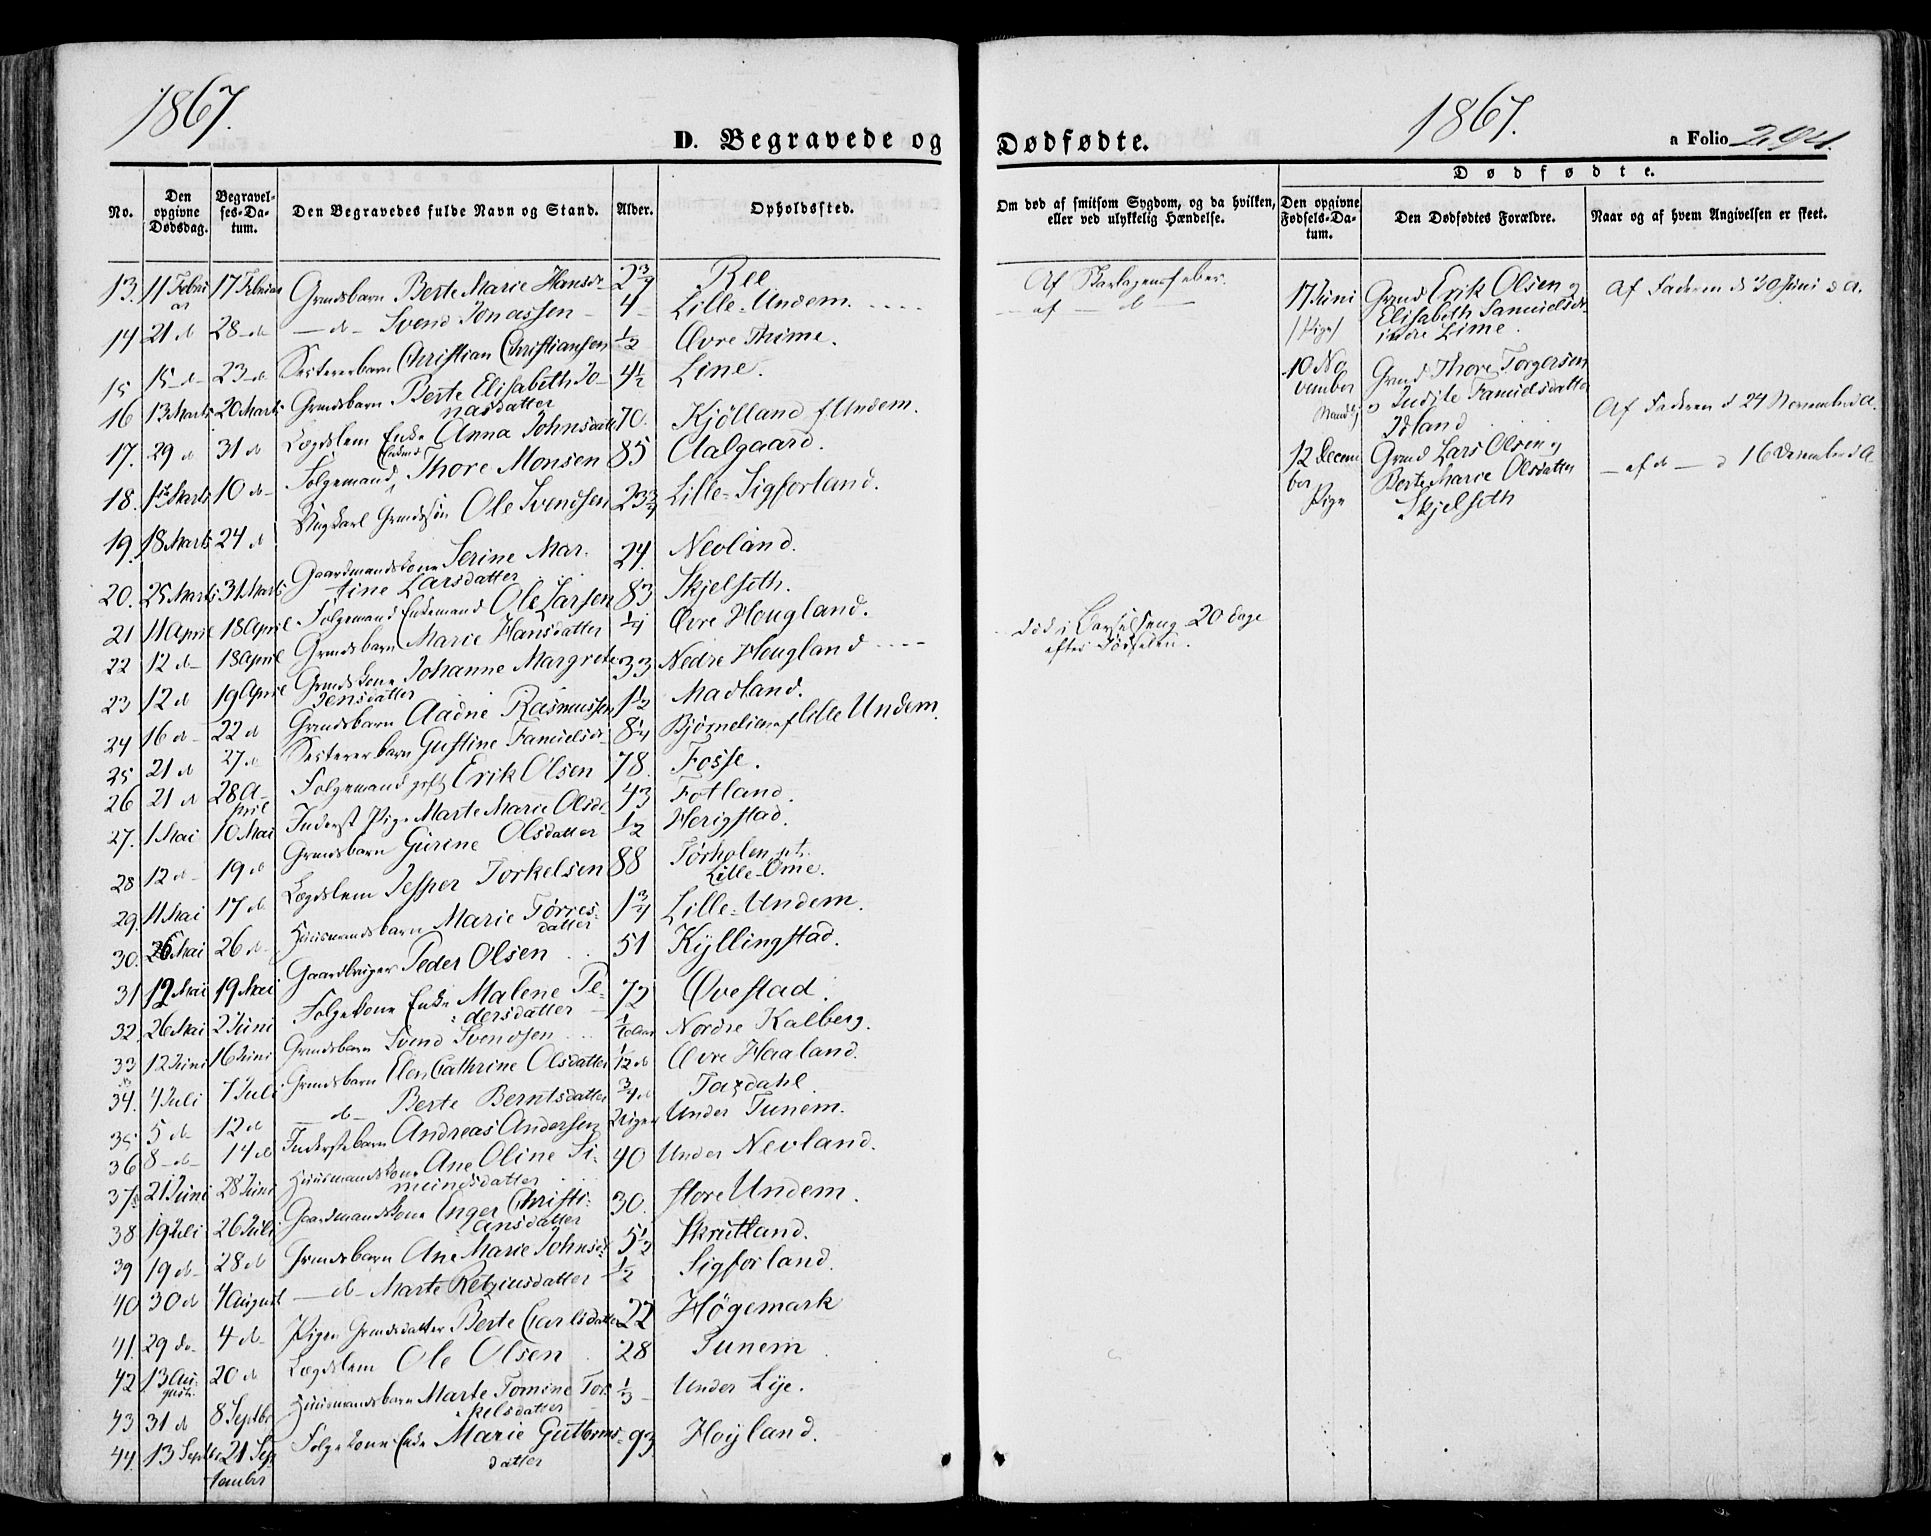 1867.
D. Begravede og
No.
Den opgivne Dødsdag.
Begravelses-Datum.
Den Begravedes fulde Navn og Stand.
Alder.
Opholdssted.
13. 11 Februar 17 Februar Grmdsbarn Berte Marie Hansd: 2 3/4 Ree
14 21 d 28 d — d — Svend Jonassen 4 Lille-Undem.
15 15 d 23 d Sestererbarn Christian Christiansen 1/2 Øvre Thime.
16 13 Marts 20 Marts Grmdsbarn Berte Elisabeth Jo- 4 1/2 Line.
nasdatter
17. 29 d 31 d Lægdslem Enke Anna Johnsdatt 70. Kjølland f Undem.
18. Marts 10 d Folgemand Enkmd Thore Monsen 85 Aalgaard.
19. 18 Marts 24 d Ungkarl Grmdssøn Ole Svendsen 23 3/4 Lille-Sigforland.
20. 25 Marts 31 Marts Gaardmandskone Serine Mar- 24. Nevland.
tine Larsdatter
21 11 April 18 April Folgemand Enkemand Ole Larsen 83 Skjelseth.
22 12 d 18 April Grmdsbarn Marie Hansdatter 1/4 Øvre Hougland.
23 12 d 19 April Grmdskone Johanne Margrete 33 Nedre Hougland
Jensdatter
24 16 d 22 d Grmdsbarn Aadne Rasmussen 1 1/2 Madland.
25 21 d 27 d Sestererbarn Gustine Samuelsd: 8 1/4 Bjørnelien f Lille Undem.
26 21 d 28 April Folgemand gift Erik Olsen 78. Fosse.
27. 1 Mai 10 Mai Inderst Pige Marte Marie Olsd: 43 Fotland.
28 12 d 19 d Grmdsbarn Gurine Olsdatter 1/2 Herigstad.
29. 11 Mai 17 d Lægdslem Jesper Torkelsen 88 Torholen p.t.
Lille-Ome.
30. 26 Mai 26 d Huusmandsbarn Marie Tørres- 1 3/4 Lille-Undem.
datter
31 12 Mai 19 Mai Gaardbruger Peder Olsen 51 Kyllingstad.
32. 26 Mai 2 Juni Folgekone Enke Malene Pe- 72 Ovestad.
dersdatter
33 12 Juni 16 Juni Grmdsbarn Svend Svendsen Nordre Kalberg.
34. 4 Juli 7 Juli Grmdsbarn Elen Cathrine Olsdatter 1/12 d Øvre Haaland.
35 5 d 12 d — d — Berte Berntsdatter 3/4 d Taxdahl.
36 8 d 14 d Inderstebarn Andreas Andersen 2 Uger Under Tunem.
37. 21 Juni 28 Juni Huusmandskone Ane Oline Si- 40 Under Nevland.
meinsdatter
38 19 Juli 26 Juli Gaardmandskone Inger Christi- 30. store Undem.
ansdatter
39 19 d 28 d Grmdsbarn Ane Marie Johnsd: 5 1/2 Skrutland.
40 30 d 4 August — d — Marte Retziusdatter 1/2 Sigforland.
41. 29 do 4 d Pigen Grmdsdatter Berte Carlsdatter 22 Høgemark
42 13 August 20 d Lægdslem Ole Olsen 28 Tunem
43 31 d 8 Septbr Huusmandsbarn Marte Tomine Tor- 1/3 Under Lye.
kelsdatter
44. 13 Septbr 21 September Folgekone Enke Marie Guttorms- 93 Høyland.
datter
Dødfødte.
1867.
a Folio 294.
Om død af smitsom Sygdom, og da hvilken, eller ved ulykkelig Hændelse.
Dødfødte.
Den opgivne Fødsels-Datum.
Den Dødfødtes Forældre.
Naar og af hvem Angivelsen er skeet.
Af Skarlagensfeber.
— af — d —
død i Barselseng 20 dage
efter Fødselen.
17 Juni Grmd Erik Olsen og Af Faderen d 30 Juni s A.
(Pige) Elisabeth Samuelsd:
indre Lime.
10 November Grmd Thore Torgersen
o Judite Samuelsdatter
Idland Af Faderen d 24 November s A.
12 December Grmd Lars Olsen og — af d — d 16 December s A.
Pige Berte Marie Olsdatter
Skjelseth